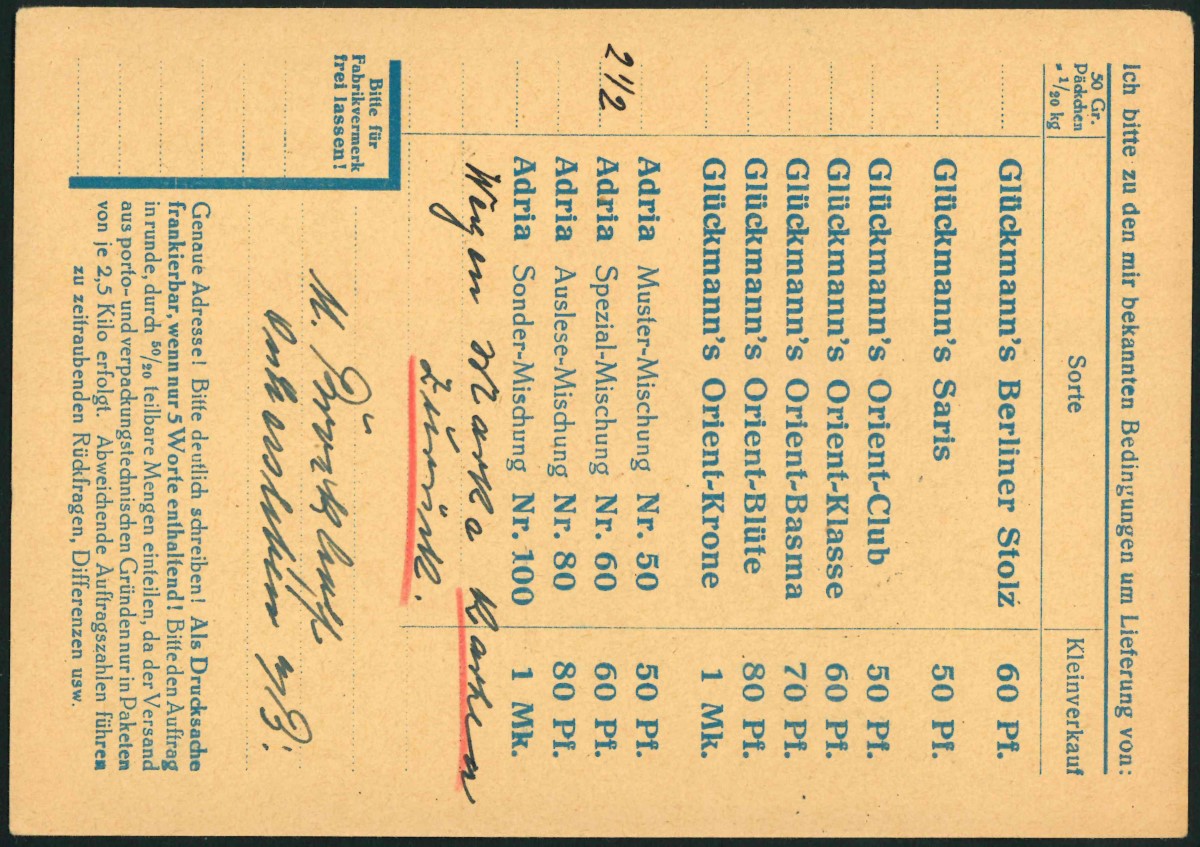 Ich bitte zu den mir bekannten Bedingungen um Lieferung von:
50 Gr. Päckchen = 1/20 kg
Sorte
Kleinverkauf
Glückmann's Berliner Stolz 60 Pf.
Glückmann's Saris 50 Pf.
Glückmann's Orient-Club 50 Pf.
Glückmann's Orient-Klasse 60 Pf.
Glückmann's Orient-Basma 70 Pf.
Glückmann's Orient-Blüte 80 Pf.
Glückmann's Orient-Krone 1 Mk.
Adria Muster-Mischung Nr. 50 50 Pf.
2 1/2 Adria Spezial-Mischung Nr. 60 60 Pf.
Adria Auslese-Mischung Nr. 80 80 Pf.
Adria Sonder-Mischung Nr. 100 1 Mk.
Karten
zurück.
Bitte für
Fabrikvermerk
frei lassen!
M.
Genaue Adresse! Bitte deutlich schreiben! Als Drucksache
frankierbar, wenn nur 5 Worte enthaltend! Bitte den Auftrag
in runde, durch 50/20 teilbare Mengen einteilen, da der Versand
aus porto- und verpackungstechnischen Gründen nur in Paketen
von je 2,5 Kilo erfolgt. Abweichende Auftragszahlen führen
zu zeitraubenden Rückfragen, Differenzen usw.